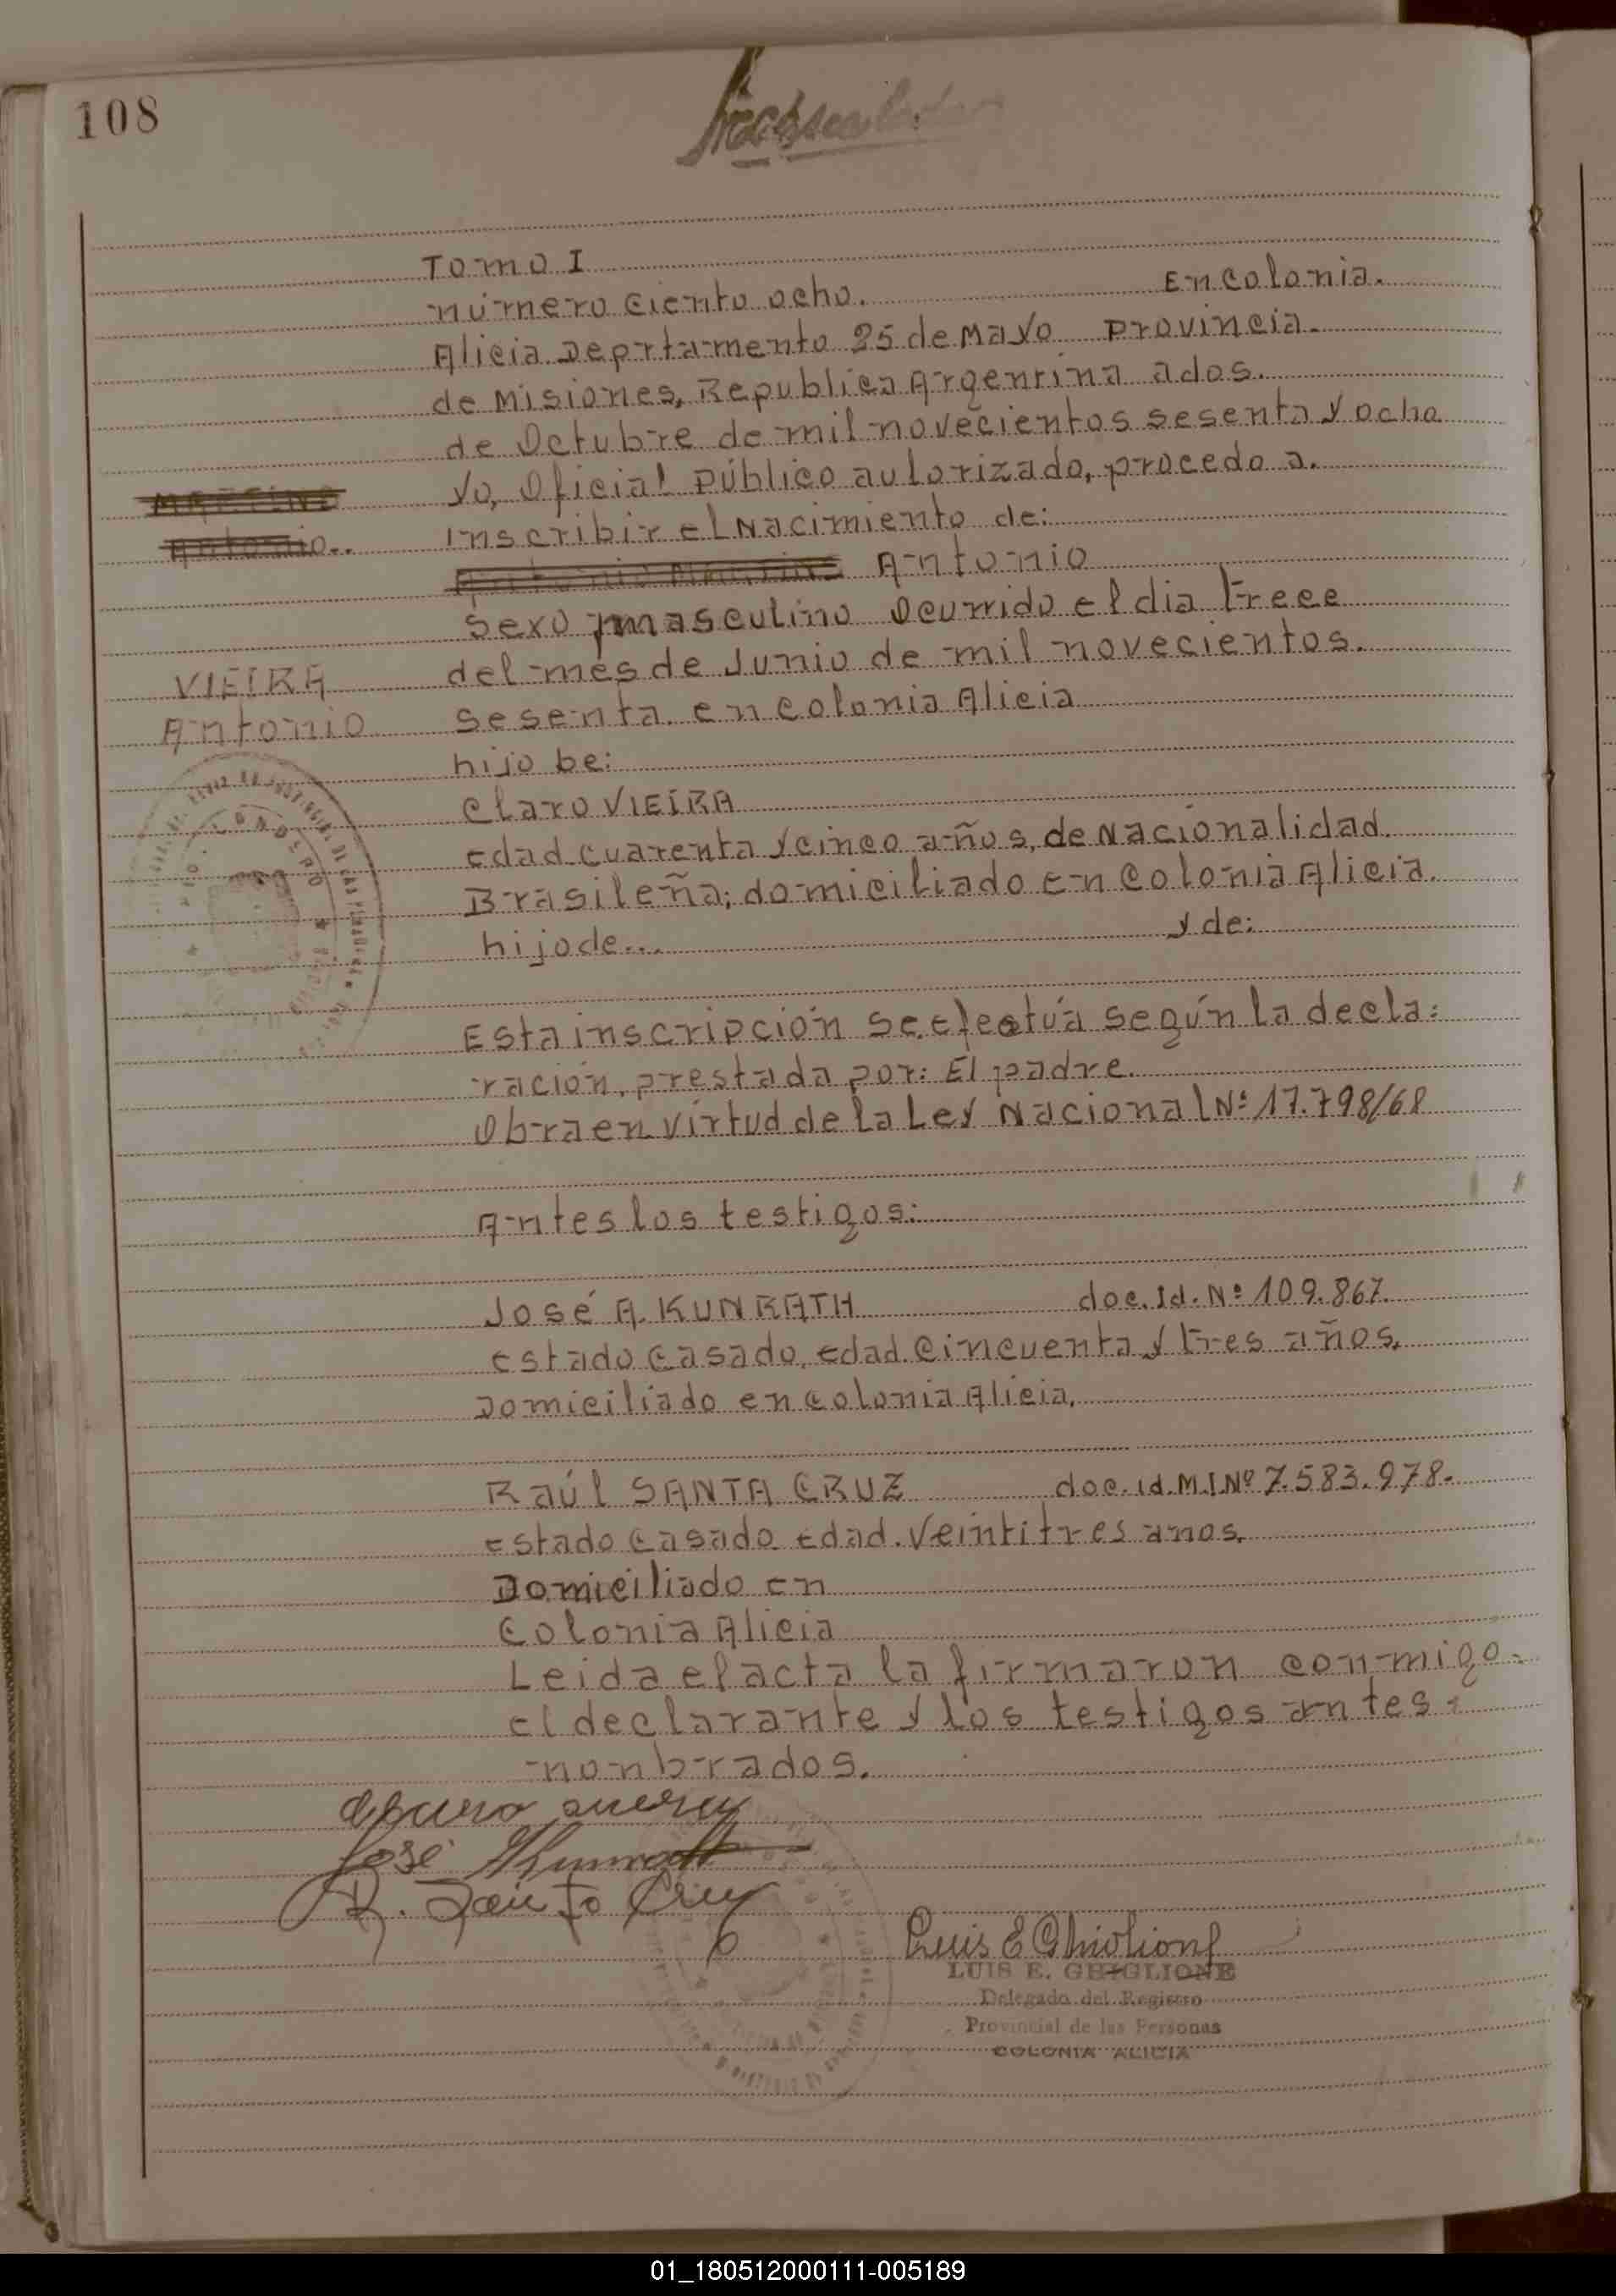 108
Tomo I
número ciento ocho. En Colonia.
Alicia Deprtamento 25 de Mayo Provincia.
de Misiones, Republica Argentina a dos.
de Octubre de mil novecientos sesenta y ocho
Yo, Oficial Público autorizado, procedo a.
Antonio..
inscribir el Nacimiento de:
Antonio
sexo masculino ocurrido el dia trece
del mes de Junio de mil novecientos.
VIEIRA
sesenta. en Colonia Alicia
Antonio
hijo be:
Claro VIEIRA
edad cuarenta y cinco años, de Nacionalidad.
Brasileña; domiciliado en Colonia Alicia.
hijo de... y de:
Esta inscripción se efectúa según la decla:
ración, prestada por: El padre.
Obra en virtud de la Ley Nacional Nº 17.798/68
Antes los testigos:
José A. KUNRATH doc. Id. Nº 109.867.
estado casado, edad. cincuenta y tres años.
Domiciliado en colonia Alicia.
Raúl SANTA CRUZ doc. id. M.I. Nº 7.583.978.
estado casado edad. veintitres anos.
Domiciliado en
Colonia Alicia
Leida el acta la firmaron conmigo.
el declarante y los testigos antes.
nonbrados.
José A Kunrath
R. Santa Cruz
Luis E Ghiglione
LUIS E. GHIGLIONE
Delegado del Registro
Provincial de las Personas
COLONIA ALICIA
01_180512000111-005189